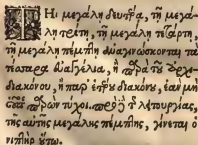 Τῇ μεγάλῃ δευτέρᾳ, τῇ μεγά-
λῃ τρίτῃ, τῇ μεγάλῃ τετάρτῃ,
τῇ μεγάλῃ πέμπτῃ ἀναγινώσκονται τὰ
τέσσαρα εὐαγγέλια, ἢ
διακόνου, ἢ παρ' ἑτέρου διακόνου, ἐὰν μὴ
τύχοι. πρὸ τῆς λειτουργίας,
τῆς αὐτῆς μεγάλης πέμπτης, γίνεται ὁ
νιπτὴρ οὕτω.